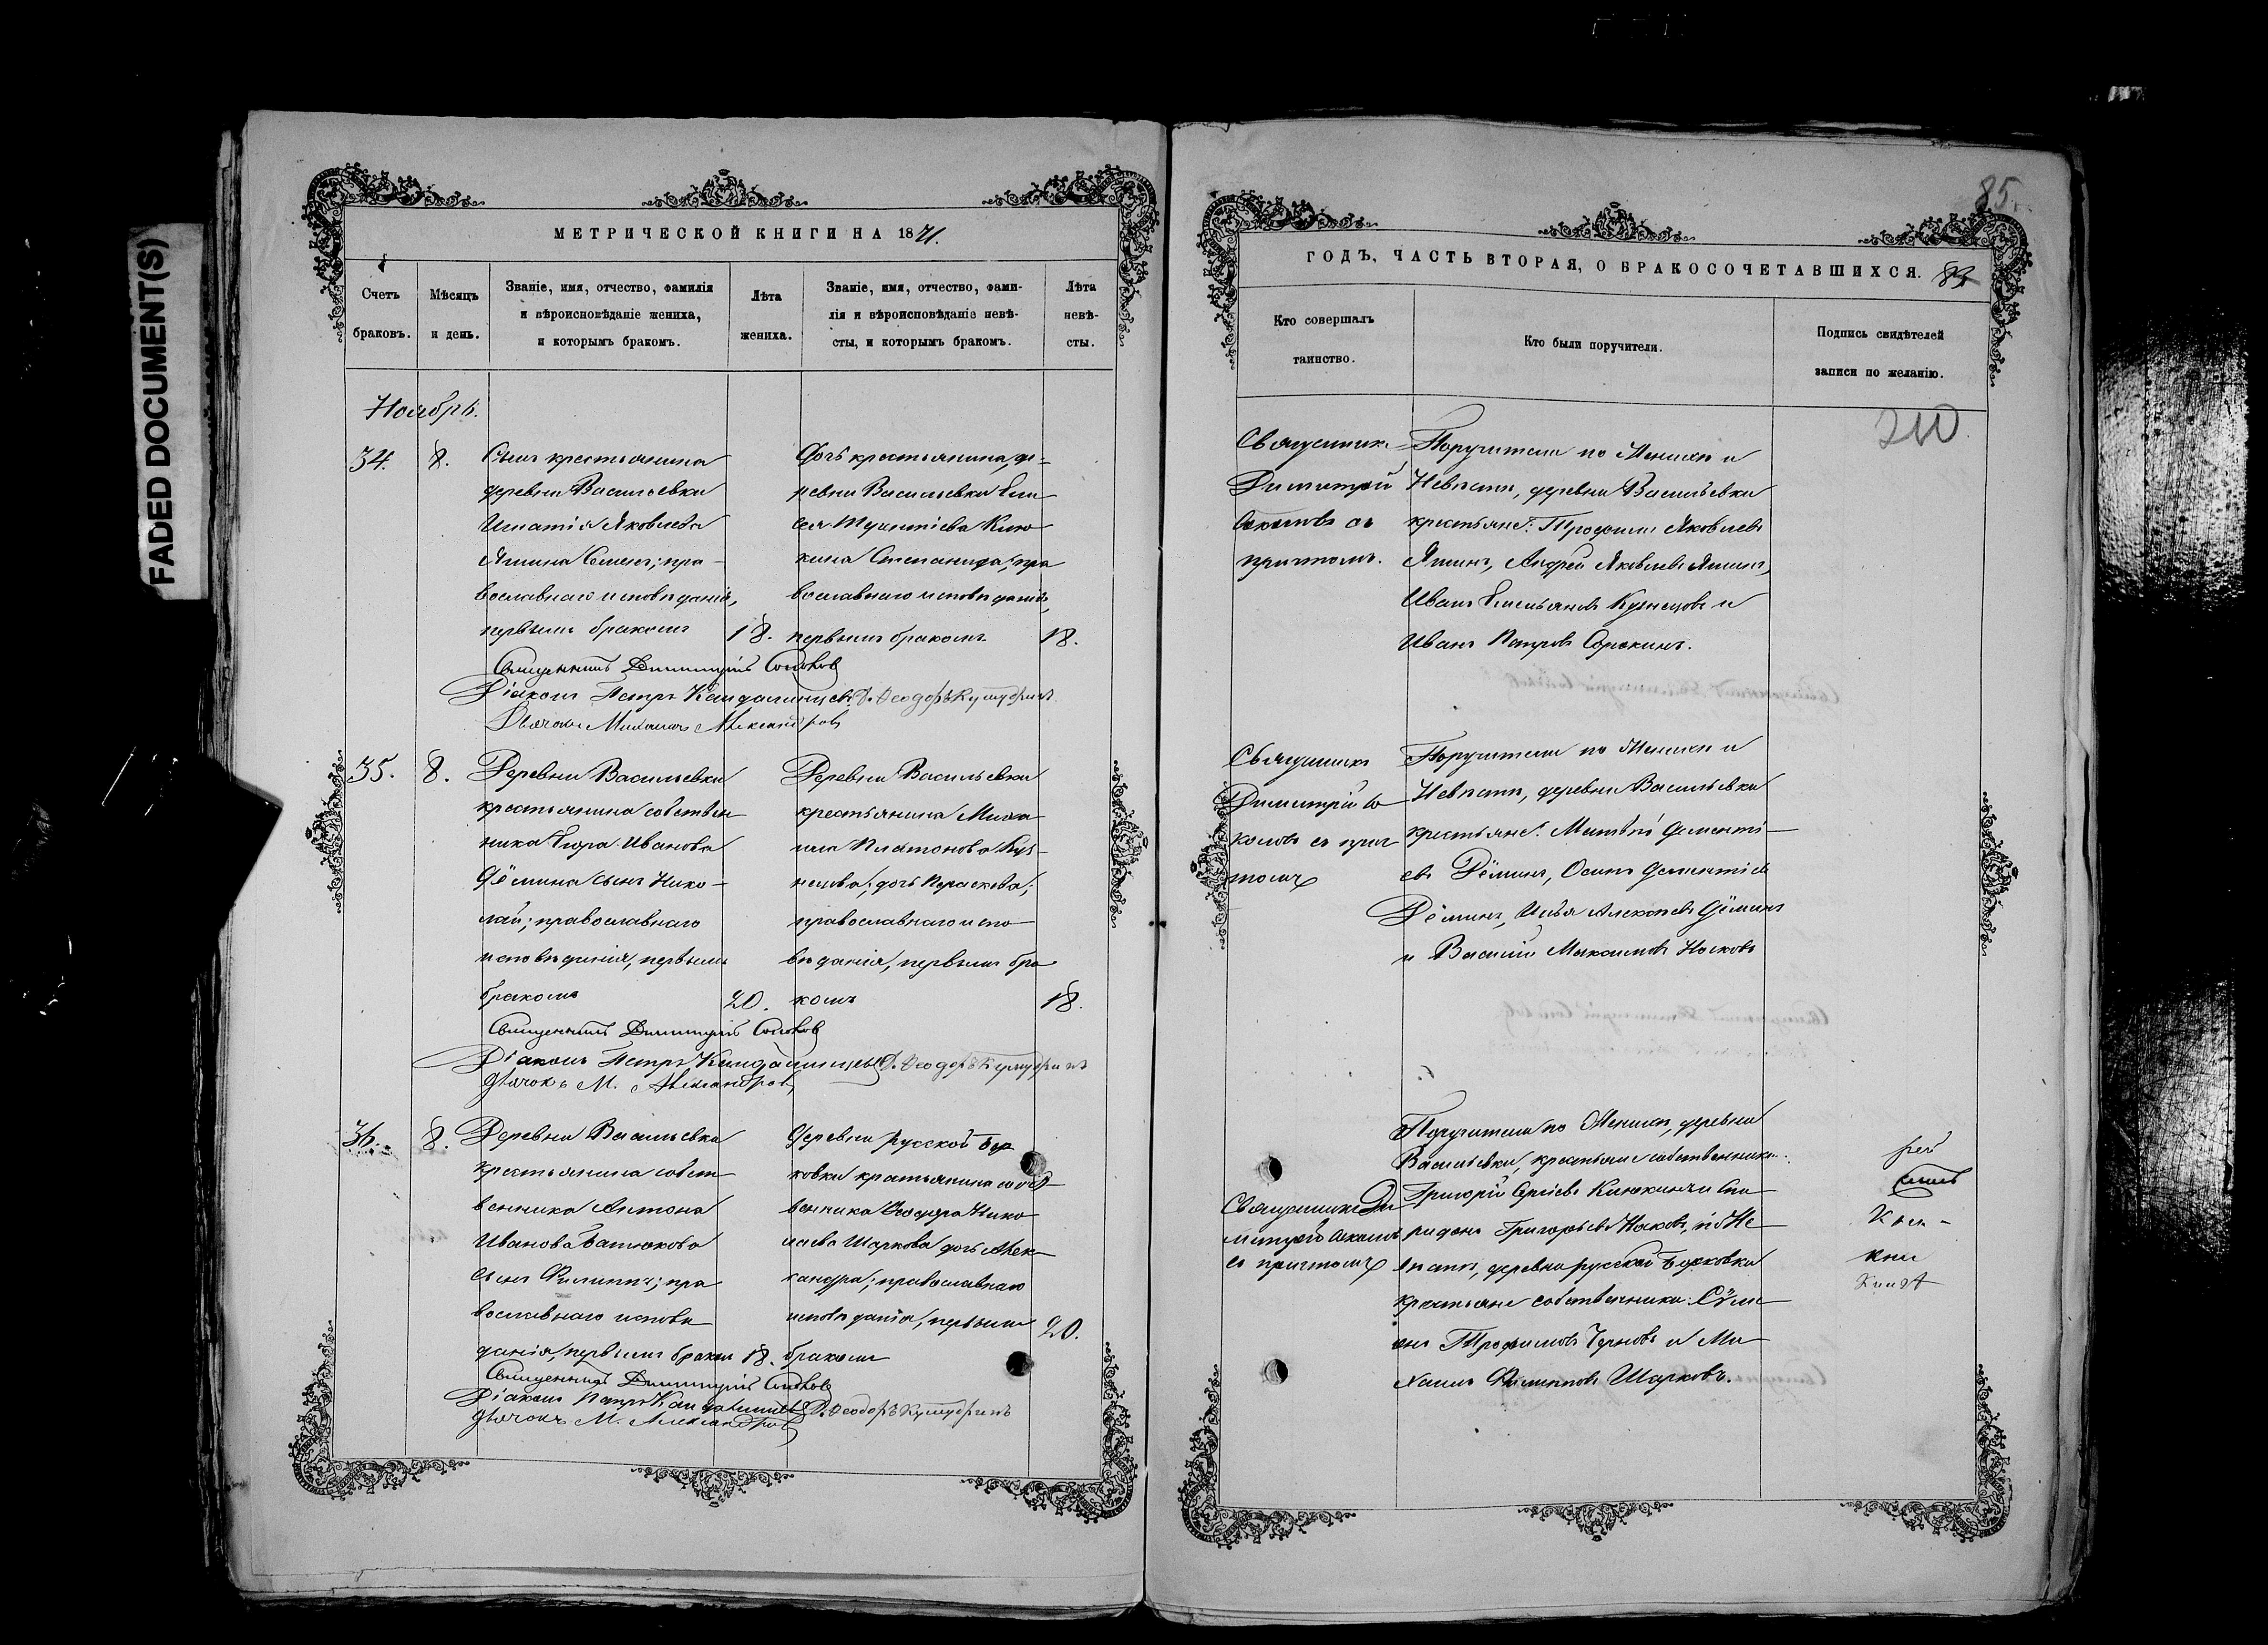 FADED DOCUMENT(S)
МЕТРИЧЕСКОЙ КНИГИ НА 1871.
Счетъ браковъ.
Мѣсяцъ и день.
Званіе, имя, отчество, фамилія
и вѣроисповѣданіе жениха,
и которымъ бракомъ.
Лѣта жениха.
Званіе, имя, отчество, фами-
лія и вѣроисповѣданіе невѣ-
сты, и которымъ бракомъ.
Лѣта невѣ-
сты.
Ноябрь.
34. 8.
Сынъ крестьянина
деревни Васильевки
Игнатія Яковлева
Яшина Семенъ; пра-
вославнаго исповѣданія,
первымъ бракомъ 18.
Дочь крестьянина, де-
ревни Васильевки Ели-
сея Терентіева Клю-
кина Степанида; пра
вославнаго исповѣданія,
первымъ бракомъ. 18.
Священникъ Димитрій Соколовъ
Діаконъ Петръ
Дьячокъ Михаилъ Александровъ
35. 8.
Деревни Васильевки
крестьянина собствен
ника Егора Иванова
Дёмина сынъ Нико-
лай; православнаго
исповѣданія, первымъ
бракомъ 20.
Деревни Васильевки
крестьянина Миха
ила Платонова Куз-
нецова; дочь Параскева;
православнаго испо
вѣданія, первымъ бра
комъ 18.
Священникъ Димитрій Соколовъ
Діаконъ Петръ
Дьячокъ М. Александровъ
36. 8.
Деревни Васильевки
крестьянина собст
венника Антона
Иванова Батюкова
сынъ Филиппъ; пра
вославнаго исповѣ
данія, первымъ бракомъ 18.
Деревни русской Бор
ковки крестьянина собст
венника Ѳеодора Нико
лаева Шаркова дочь Алек
сандра; православнаго
исповѣданія, первымъ 20.
бракомъ
Священникъ Димитрій Соколовъ
Діаконъ Петръ
Дьячокъ М. Александровъ
85.
ГОДЪ, ЧАСТЬ ВТОРАЯ, О БРАКОСОЧЕТАВШИХСЯ.
Кто совершалъ
таинство.
Кто были поручители.
Подпись свидѣтелей
записи по желанію.
210
Священникъ
Димитрій
Соколовъ съ
причтомъ.
Поручители по Женихѣ и
Невѣстѣ, деревни Васильевки
крестьяне: Трофимъ Яковлевъ
Яшинъ, Андрей Яковлевъ Яшинъ,
Иванъ Емельяновъ Кузнецовъ и
Иванъ Петровъ Сорокинъ.
Священникъ
Димитрій Со
коловъ съ прич
томъ
Поручители по Женихѣ и
Невѣстѣ, деревни Васильевки
крестьяне: Матвѣй Дементі-
евъ Дёминъ, Осипъ Дементіевъ
Дёминъ, Илья Алексѣевъ Дёминъ
и Василій Максимовъ Носковъ
Священникъ Ди
митрій Соколовъ
съ причтомъ
Поручители по Женихѣ, деревни
Васильевки, крестьяне собственники:
Григорій Сергіевъ Клюкинъ и Спи
ридонъ Григорьевъ Носковъ, по Не
вѣстѣ, деревни русской Борковки
крестьяне собственники: Сѵме
онъ Трофимовъ Черновъ и Ми
хаилъ Филипповъ Шарковъ.